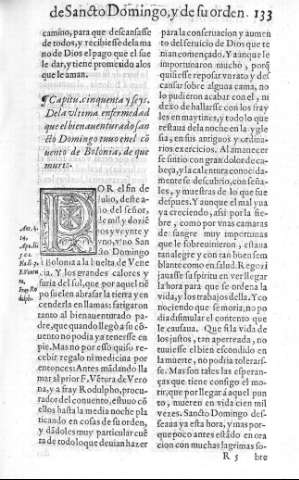 de Sancto Domingo, y de su orden. 133
camino, para que descansasse
de todos, y recibiesse de la ma
no de Dios el pago que el sue
le dar, y tiene prometido a los
que le aman.
¶ Capitu. cinquenta y seys.
De la ultima enfermedad
que el bienauenturado san
cto Domingo tuuo en el cō
uento de Bolonia, de que
murio.
POR el fin de
Iulio, deste a-
ño del señor,
de mil y dozie
tos y veynte y
vno, vino San
cto Domingo
a Bolonia a la buelta de Vene
cia. Y los grandes calores y
furia del sol, que por aquel tiē
po suelen abrasar la tierra y en
cenderla en llamas: fatigaron
tanto al bienauenturado pa-
dre, que quando llegò a su cō-
uento no podia ya tenerse en
pie. Mas no por esso quiso re-
cebir regalo ni medicina por
entonces: Antes mādando lla
mar al prior F. Vētura de Vero
na, y a fray Rodulpho, procu-
rador del conuento, estuuo cō
ellos hasta la media noche pla
ticando en cosas de su orden,
y dādoles muy particular cuē
ta de todo lo que deuian hazer
para la conseruacion y aumen
to del seruicio de Dios que te
nian començado. Y aunque le
importunaron mucho, porq̄
quisiesse reposar vn rato y des
cansar sobre alguna cama, no
lo pudieron acabar con el, ni
dexo de hallarse con los fray
les en maytines, y todo lo que
restaua dela noche en la ygle
sia, en sus antiguos y ordina-
rios exercicios. Al amanecer
se sintio con gran dolor de ca
beça, y la calentura conocida-
mente se descubrio, con seña-
les, y muestras de lo que fue
despues. Y aunque el mal yua
ya creciendo, assi por la fie-
bre, como por vnas camaras
de sangre muy importunas
que le sobreuinieron, estaua
tan alegre y con tan buen sem
blante como en salud. Regozi
jauasse su spiritu en ver llegar
la hora para que se ordena la
vida, y los trabajos della. Y co
nociendo que se moria, no po
dia dissimular el contento que
le causaua. Que si la vida de
los justos, tan aperreada, no
tuuiesse el bien escondido en
la muerte, no podria tolerar-
sse. Mas son tales las esperan-
ças que tiene consigo el mo-
rir, que por llegar á aquel pun
to, mueren en vida cien mil
vezes. Sancto Domingo des-
seaua ya esta hora, y mas por-
que poco antes estādo en ora
cion con muchas lagrimas so-
R 5 bre